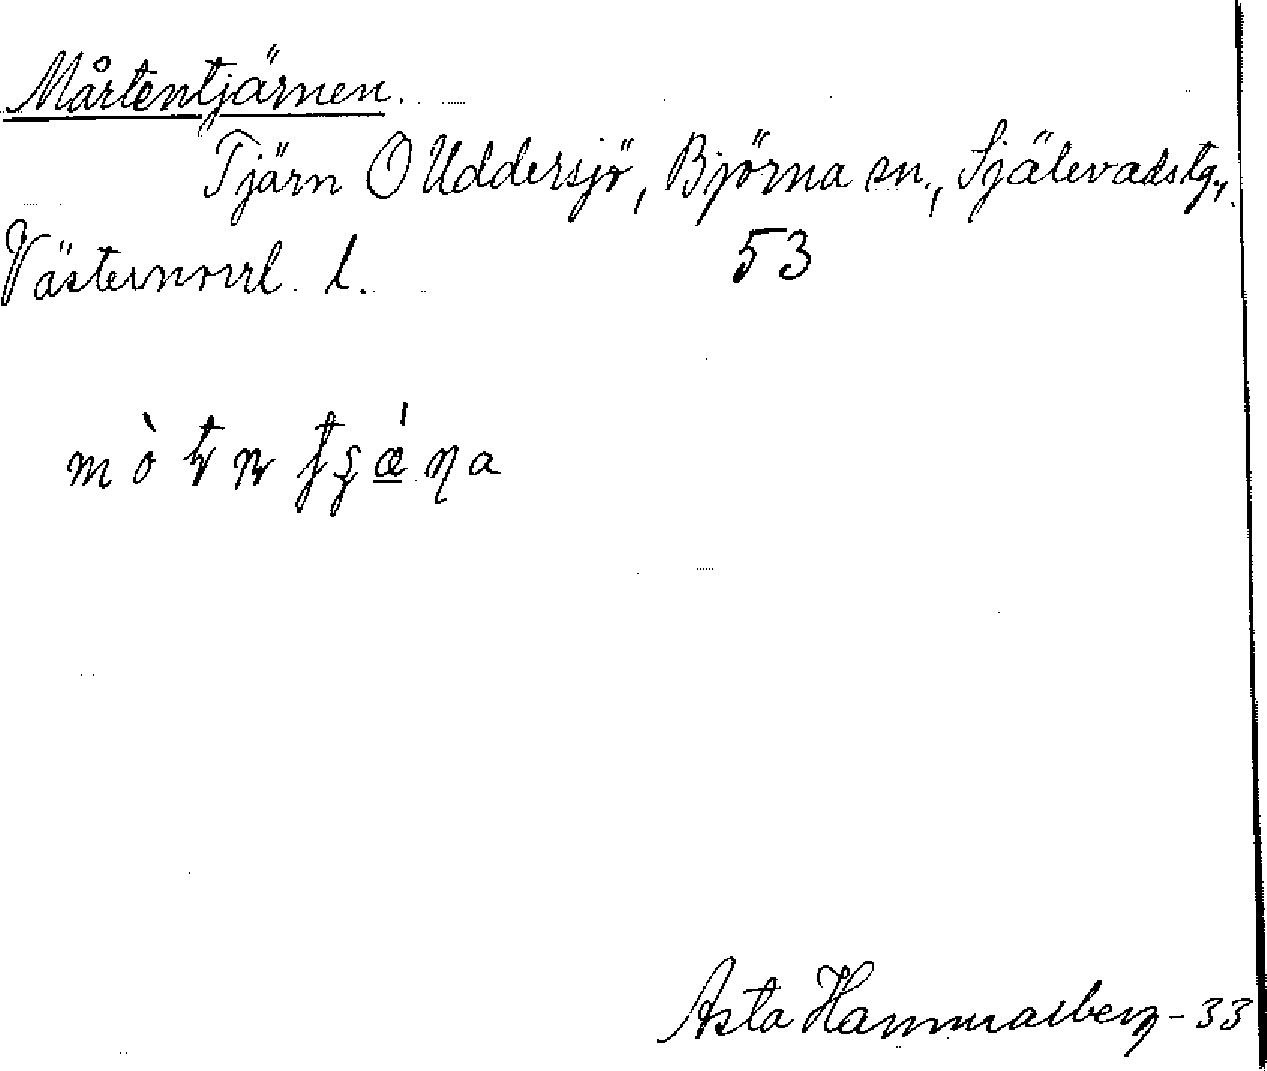 Mårtentjärnen.
Tjärn O Uddersjö, Björna sn., Själevadstg.,
Västernorrl. l. 53
Asta Hammarberg - 33